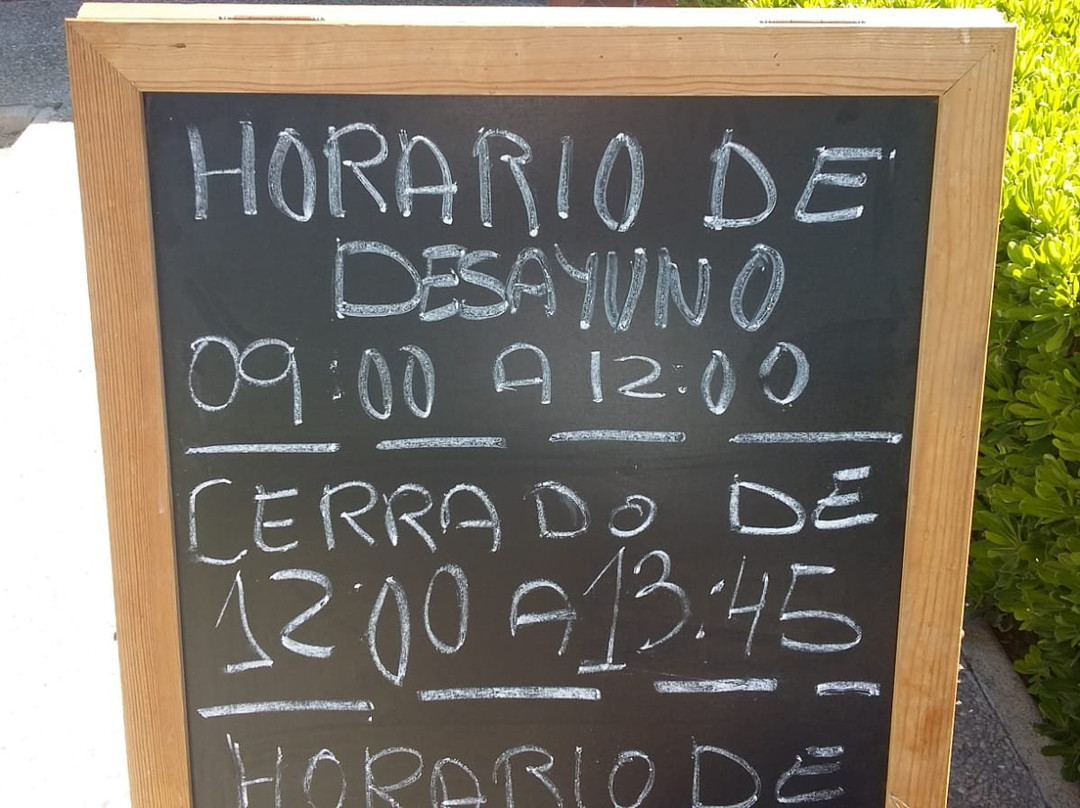 HORARIO DE
DESAYUNO
09:00 A 12:00
CERRADO DE
12:00 A 13:45
HORARIO DE